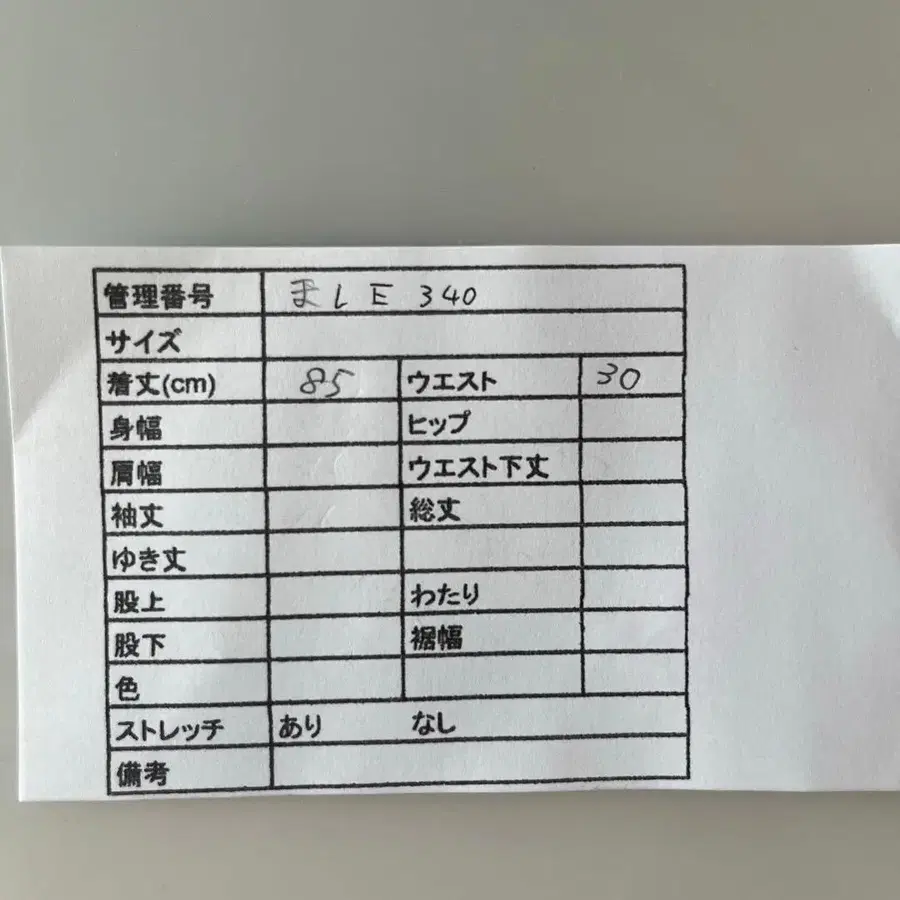 管理番号 まLE 340
サイズ
着丈(cm) 85 ウエスト 30
身幅 ヒップ
肩幅 ウエスト下丈
袖丈 総丈
ゆき丈
股上 わたり
股下 裾幅
色
ストレッチ あり なし
備考